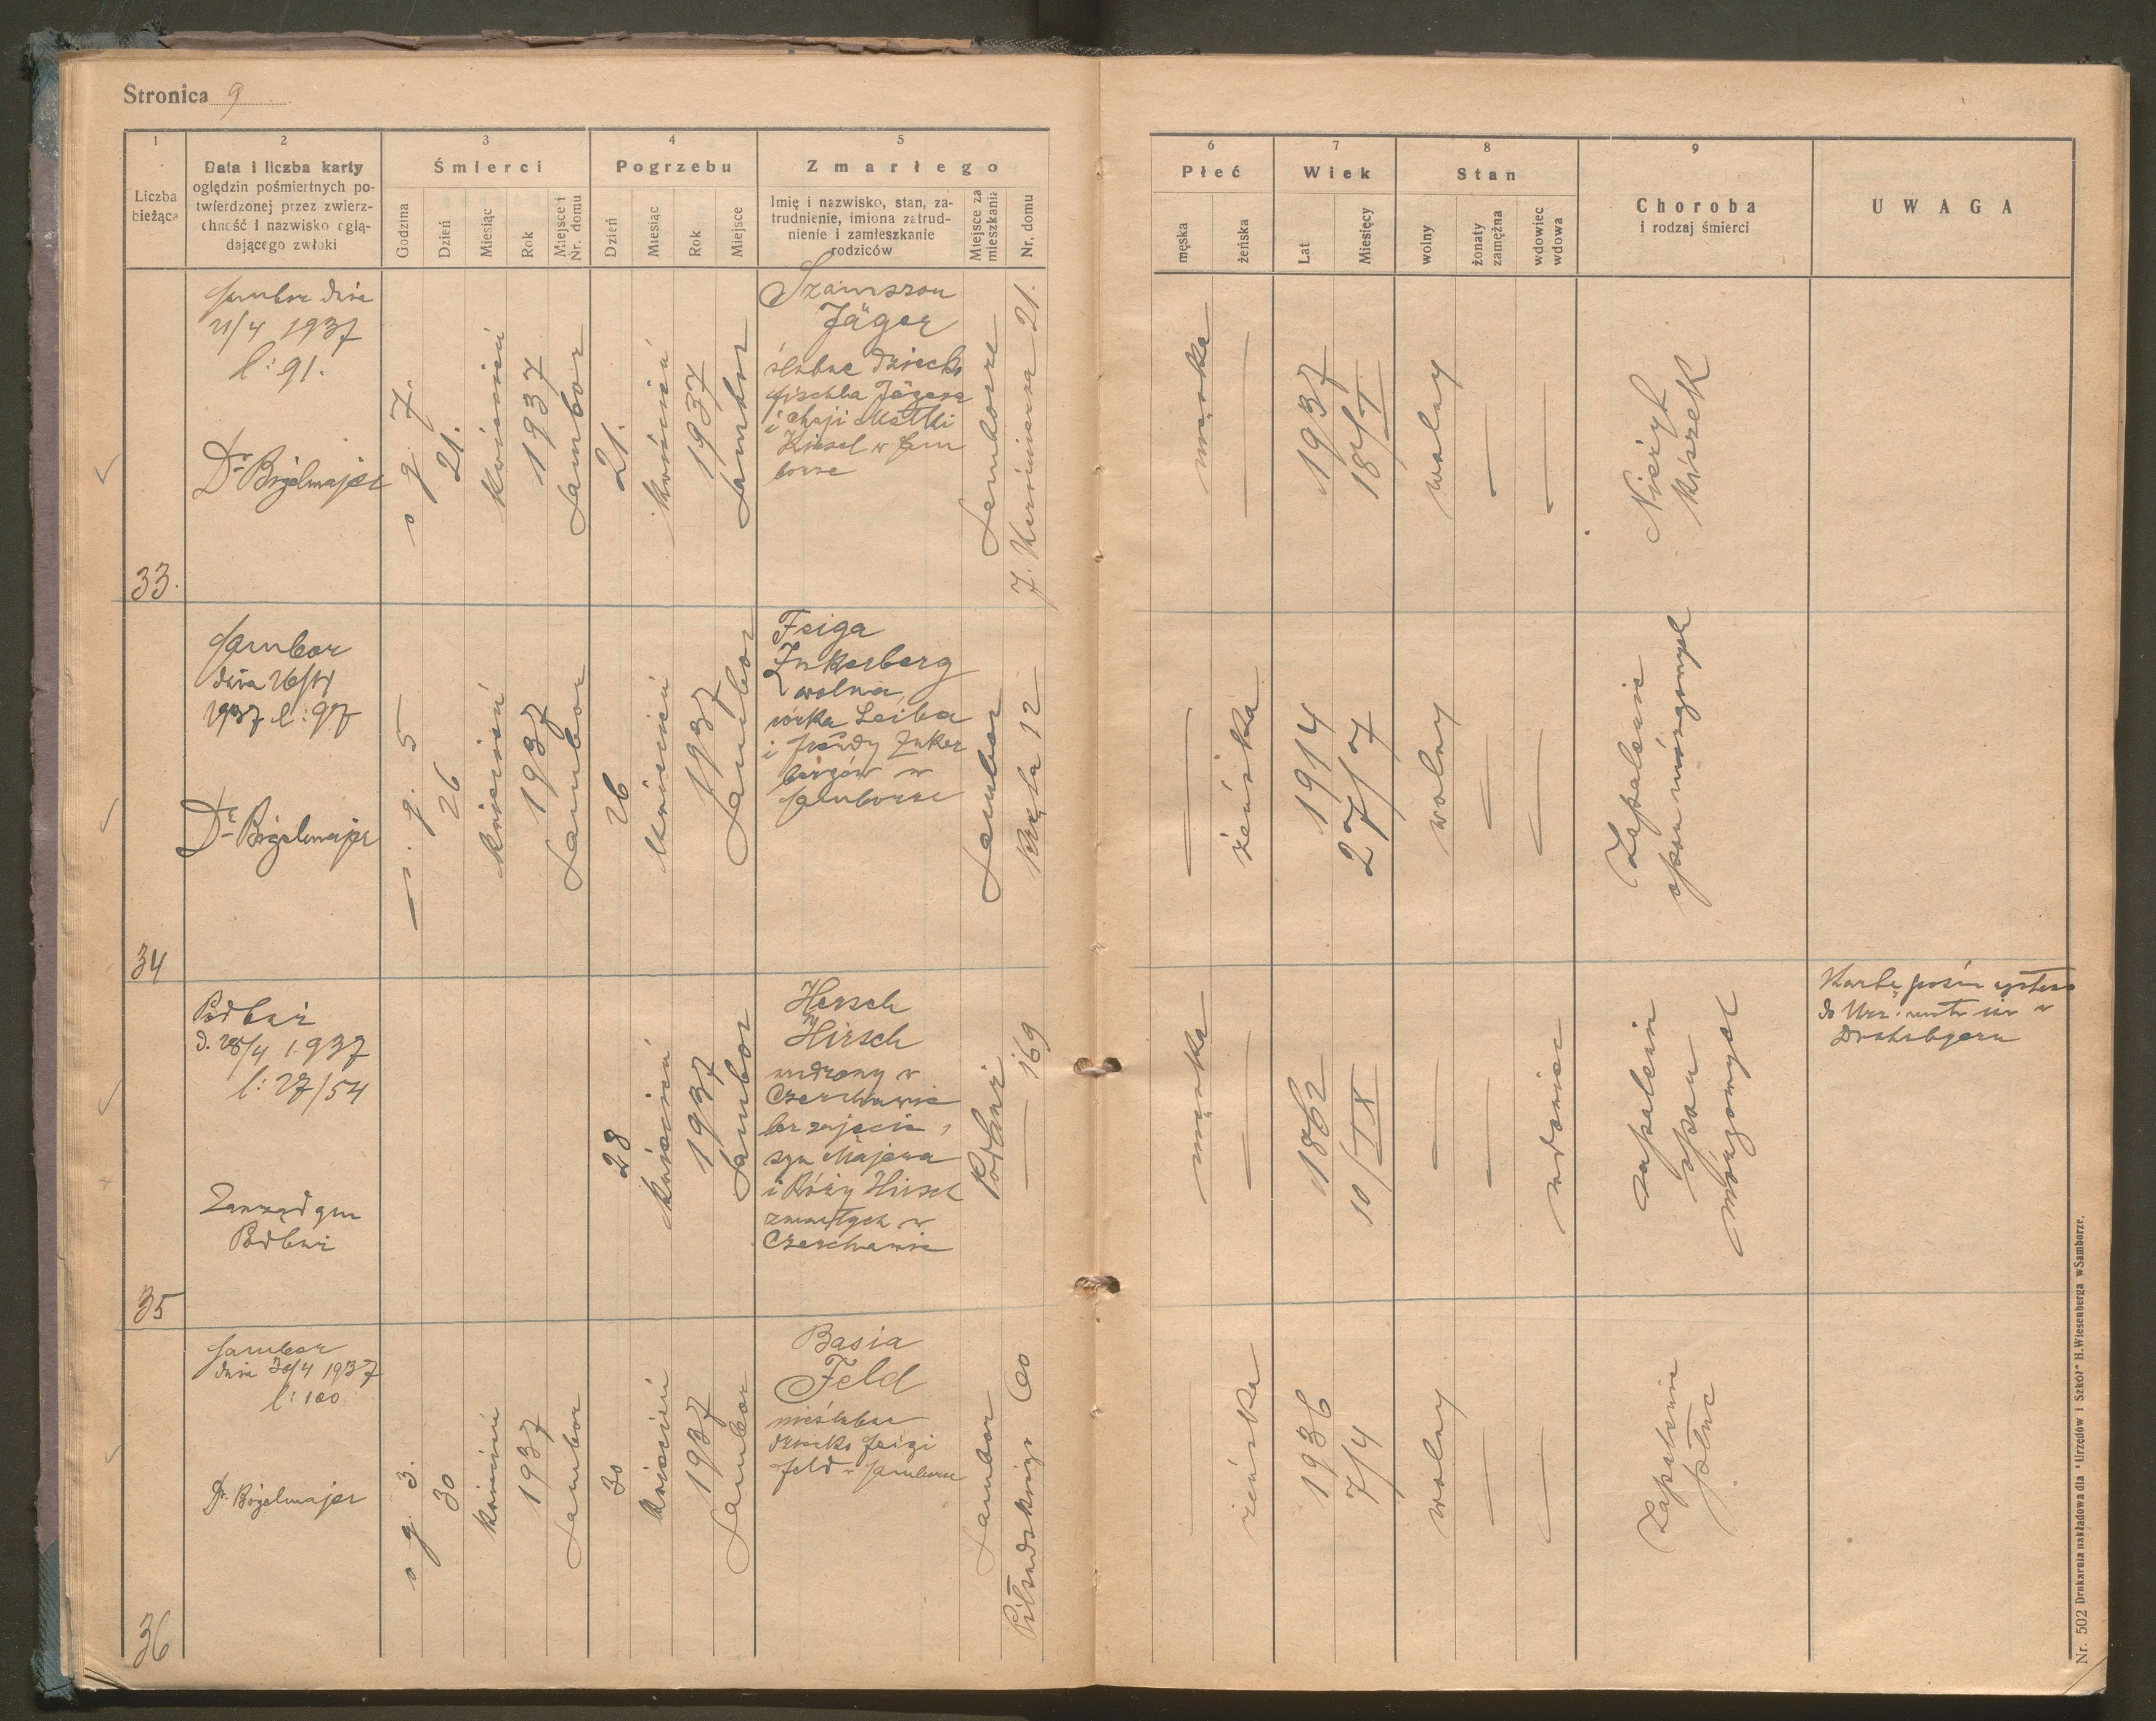 Stronica 9
1
Liczba
bieżąca
2
Data i liczba karty
oględzin pośmiertnych po-
twierdzonej przez zwierz-
chność i nazwisko oglą-
dającego zwłoki
3
Śmierci
Godzina
Dzień
Miesiąc
Rok
Miejsce i
Nr. domu
4
Pogrzebu
Dzień
Miesiąc
Rok
Miejsce
5
Zmarłego
Imię i nazwisko, stan, za-
trudnienie, imiona zatrud-
nienie i zamieszkanie
rodziców
Miejsce za
mieszkania
Nr. domu
6
Płeć
męska
żeńska
7
Wiek
Lat
Miesięcy
8
Stan
wolny
żonaty
zamężna
wdowiec
wdowa
9
Choroba
i rodzaj śmierci
UWAGA
33.
Sambor dnia
21/4 1937
l: 91.
Dr Bigelmajer
o g. 7.
21.
kwiecień
1937
Sambor
21.
kwiecień
1937
Sambor
Szamszon
Jäger
ślubne dziecko
Fischla Jägera
i Chaji Matki
Kiesel w Sam
borze
Samborze
21.
męska
1937
18/I
wolny
Nieżyt
kiszek
34
Sambor
dnia 26/IV
1937 l: 97
Dr Bigelmajer
g. 5
26
kwiecień
1937
Sambor
26
kwiecień
1937
Sambor
Feiga
Zukerberg
wolna,
córka Leiba
i Frendy Zuker
bergów w
Samborze
Sambor
Kręta 12
żeńska
1914
27/7
wolny
Zapalenie
opon mózgowych
35
Podbuż
d. 28/4 1937
l: 27/54
Zarząd gm
Podbuż
28
kwiecień
1937
Sambor
Hersch
Hirsch
urodzony w
Czerchawie
bez zajęcia,
syn Majera
i Róży Hirsch
zmarłych w
Czerchawie
Podbuż
169
męska
1862
10/IX
wdowiec
zapalenie
opon
mózgowych
Kartę pośm
do Urz. w
Drohobyczu
36
Sambor
dnia 30/4 1937
l: 100
Dr. Bigelmajer
o g. 3.
30
kwiecień
1937
Sambor
30
kwiecień
1937
Sambor
Basia
Feld
nieślubne
dziecko Feigi
Feld w Samborze
Sambor
Piłsudskiego 60
żeńska
1936
7/4
wolny
Zapalenie
płuc
Nr. 502 Drukarnia nakładowa dla "Urzędów i Szkół" H.Wiesenberga wSamborze.